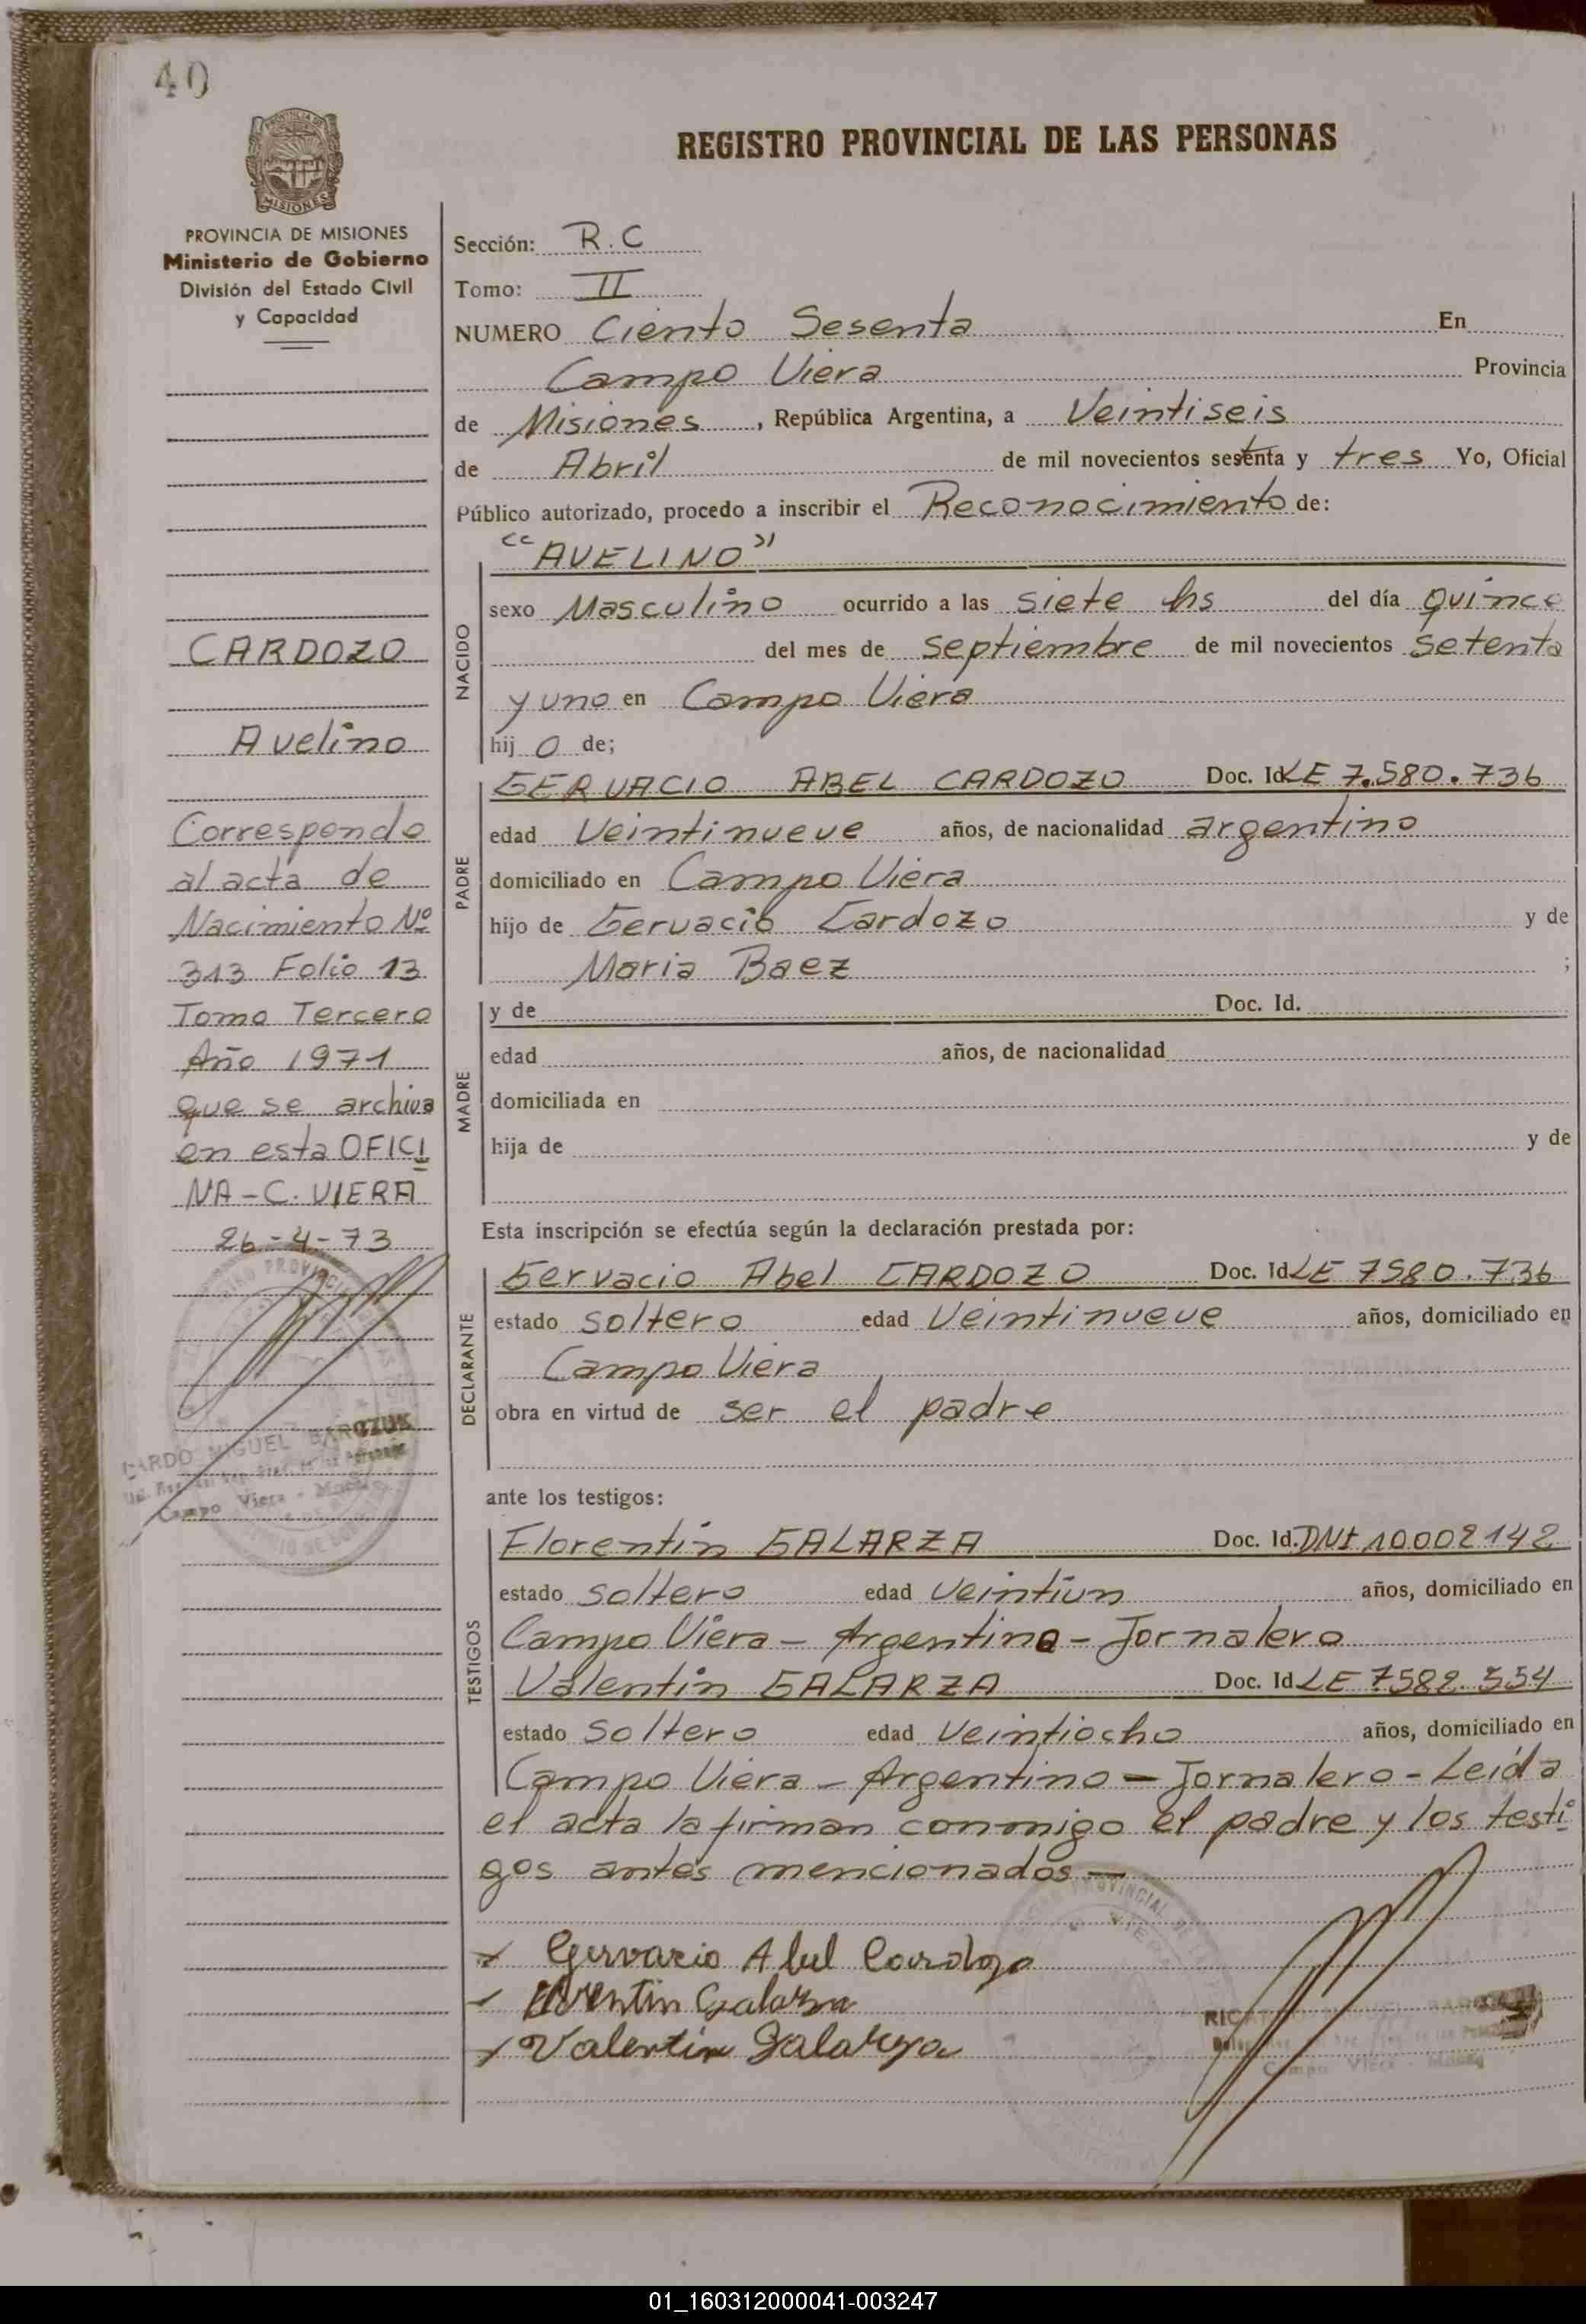 40
REGISTRO PROVINCIAL DE LAS PERSONAS
PROVINCIA DE MISIONES
Ministerio de Gobierno
División del Estado Civil
y Capacidad
CARDOZO
Avelino
Corresponde
al acta de
Nacimiento Nº
313 Folio 13
Tomo Tercero
Año 1971
que se archiva
en esta OFICI
NA - C. VIERA
26-4-73
MIGUEL
Campo Viera
Sección: R.C
Tomo: II
NUMERO Ciento Sesenta En
Campo Viera Provincia
de Misiones, República Argentina, a Veintiseis
de Abril de mil novecientos setenta y tres Yo, Oficial
Público autorizado, procedo a inscribir el Reconocimiento de:
NACIDO
"AVELINO"
sexo Masculino ocurrido a las siete hs del día quince
del mes de septiembre de mil novecientos setenta
y uno en Campo Viera
hij o de;
PADRE
GERVACIO ABEL CARDOZO Doc. Id. LE 7.580.736
edad Veintinueve años, de nacionalidad argentino
domiciliado en Campo Viera
hijo de Gervacio Cardozo y de
Maria Baez ;
MADRE
y de Doc. Id.
edad años, de nacionalidad
domiciliada en
hija de y de
Esta inscripción se efectúa según la declaración prestada por:
DECLARANTE
Gervacio Abel CARDOZO Doc. Id LE 7580.736
estado soltero edad Veintinueve años, domiciliado en
Campo Viera
obra en virtud de ser el padre
ante los testigos:
TESTIGOS
Florentin GALARZA Doc. Id. DNI 10002142
estado soltero edad veintiun años, domiciliado en
Campo Viera - Argentino - Jornalero
Valentin GALARZA Doc. Id LE 7582.554
estado soltero edad veintiocho años, domiciliado en
Campo Viera - Argentino - Jornalero - Leída
el acta la firman conmigo el padre y los testi
gos antes mencionados -
Gervacio Abel Cardozo
Galarza
Valentin Galarza
Campo Viera
01_160312000041-003247